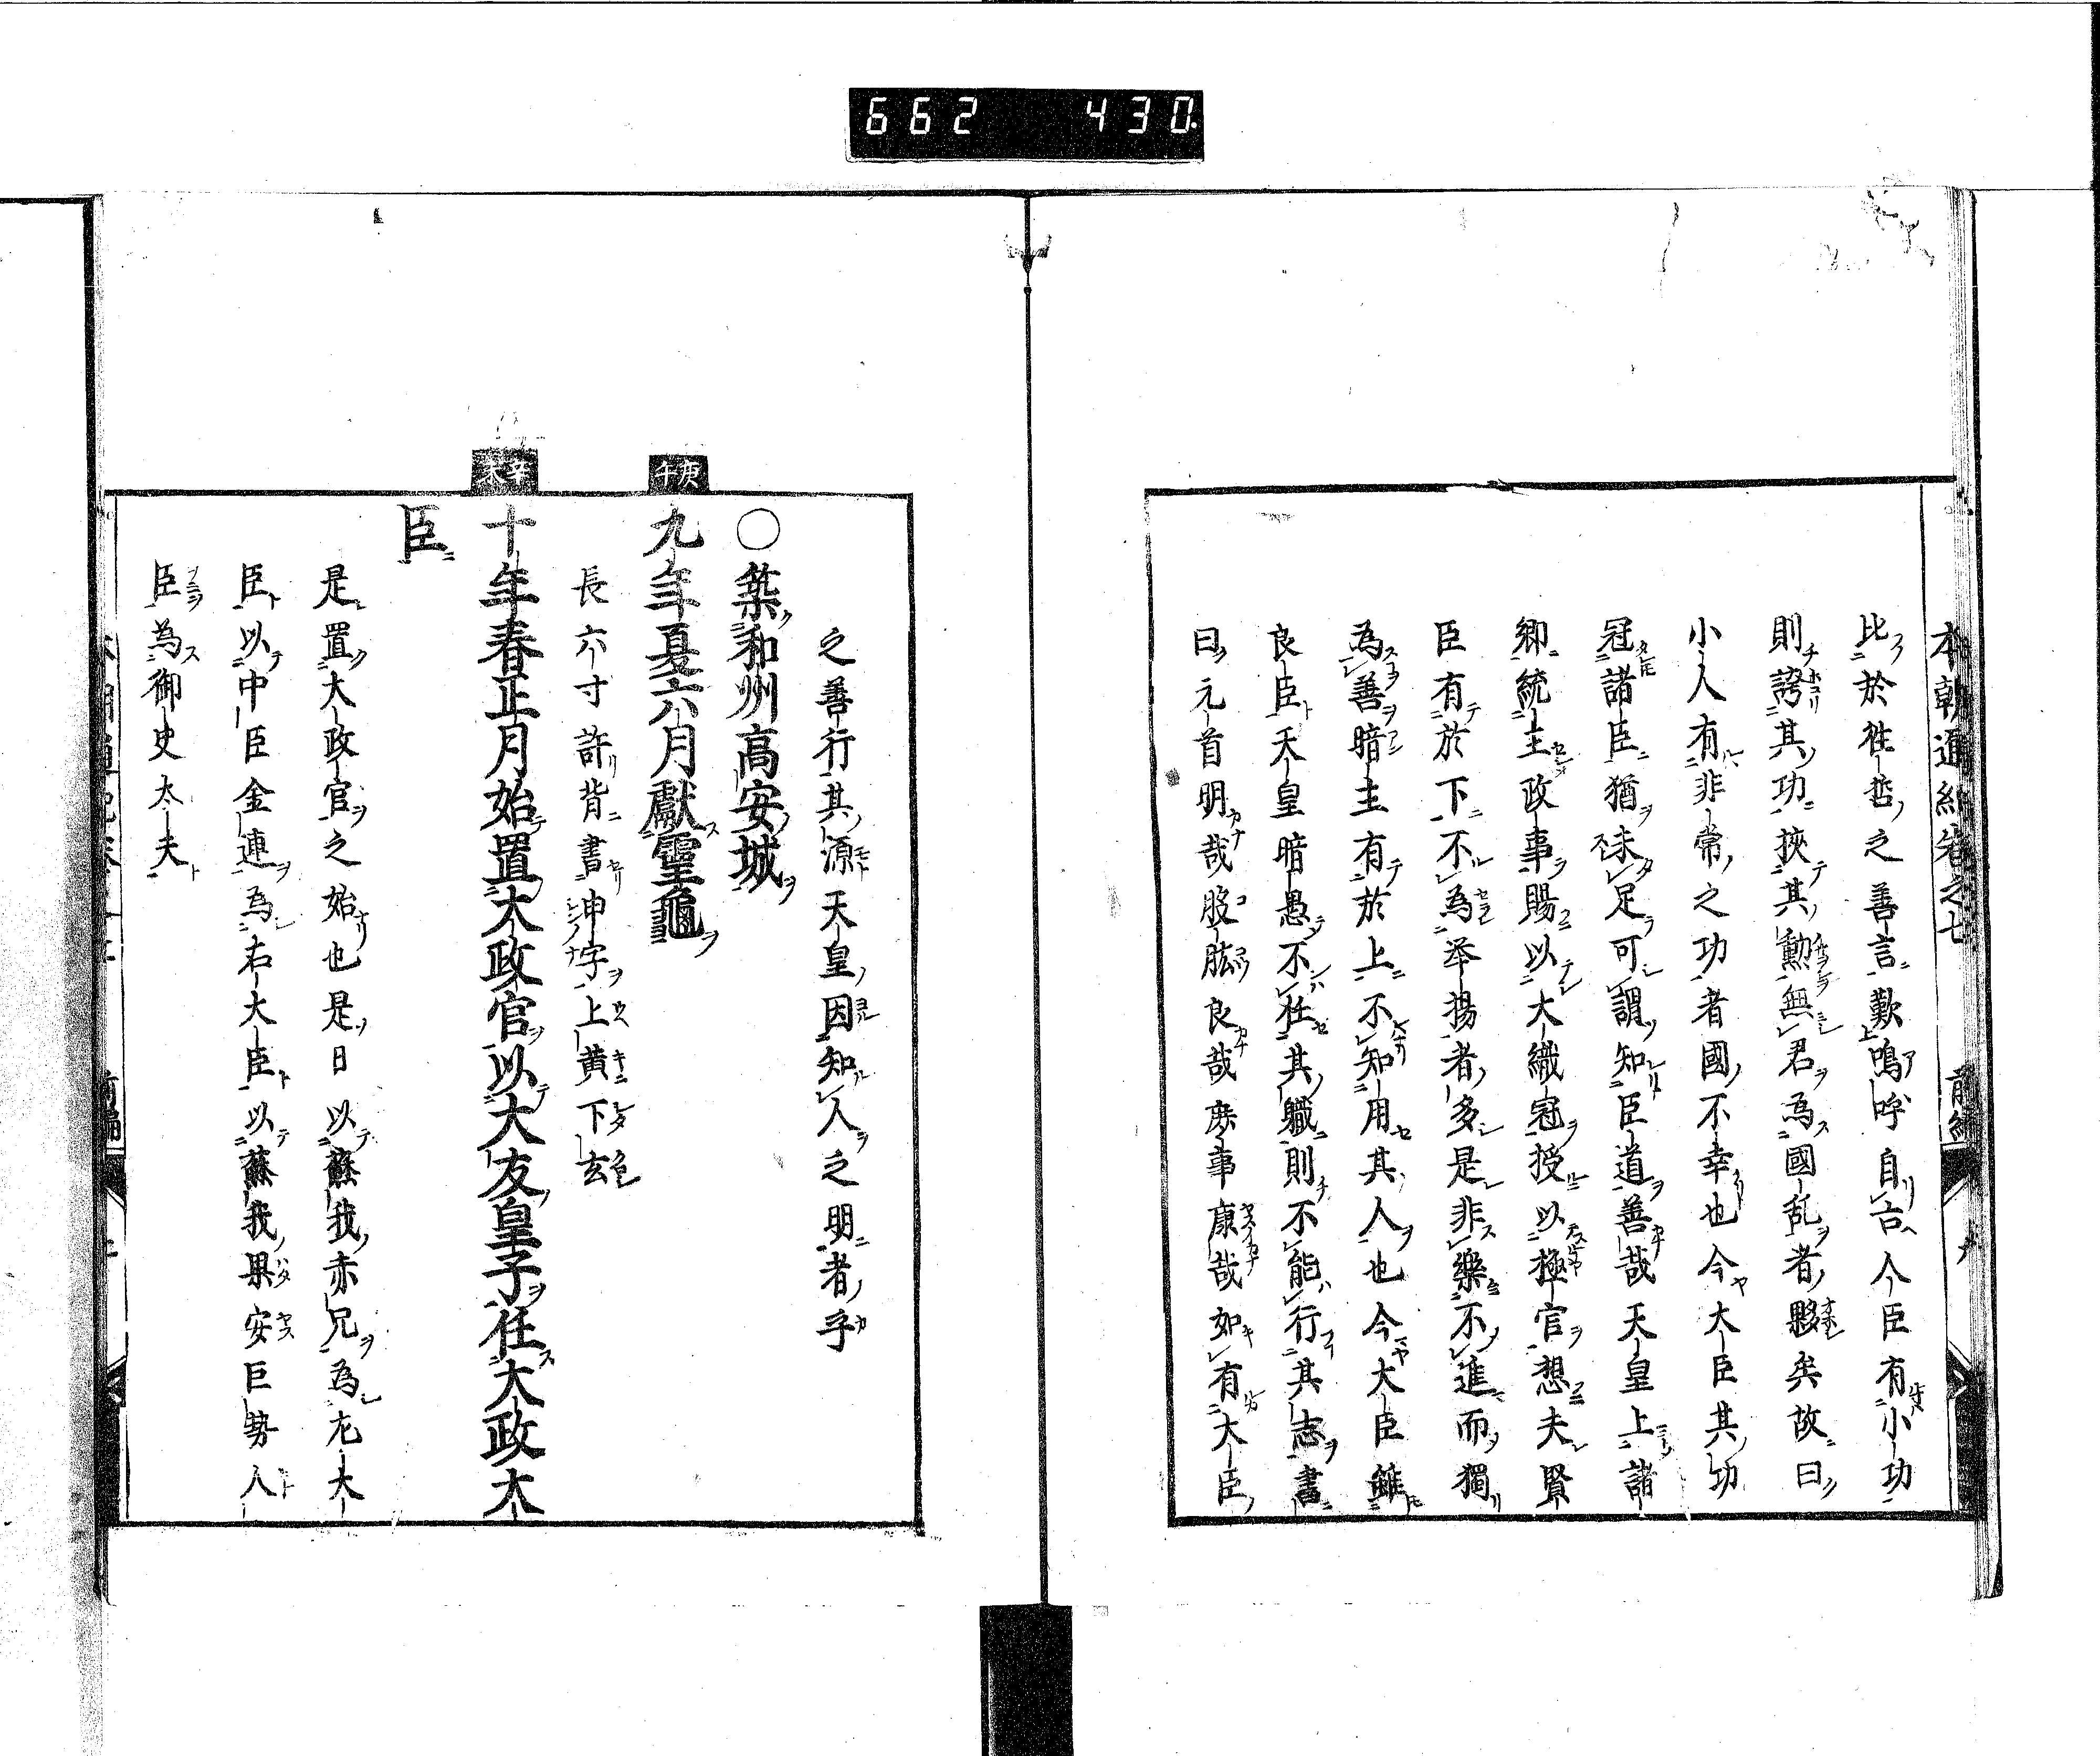 662 430
本朝通紀卷之七 前編
比於往哲之善言歎嗚呼自古人臣有小功
則誇其功挾其勳無君為國乱者夥矣故曰
小人有非常之功者國不幸也今大臣其功
冠諸臣猶未足可謂知臣道善哉天皇上諸
卿統主政事賜以大織冠授以極官想夫賢
臣有於下不為举揚者多是非樂不進而獨
為善暗主有於上不知用其人也今大臣雖
良臣天皇暗愚不任其職則不能行其志書
曰元首明哉股肱良哉庶事康哉如有大臣
之善行其源天皇因知人之明者乎
○築和州高安城
庚午
九年夏六月獻靈龜
長六寸許背書申字上黄下玄
辛未
十年春正月始置太政官以大友皇子任太政大
臣
是置大政官之始也是日以蘇我赤兄為左大
臣以中臣金連為右大臣以蘇我果安巨勢人
臣為御史太夫